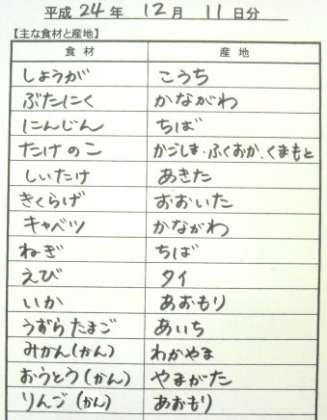 平成 24 年 12 月 11 日分
【主な食材と産地】
食材 産地
しょうが こうち
ぶたにく かながわ
にんじん ちば
たけのこ かごしま・ふくおか、くまもと
しいたけ あきた
きくらげ おおいた
キャベツ かながわ
ねぎ ちば
えび タイ
いか あおもり
うずらたまご あいち
みかん(かん) わかやま
おうとう(かん) やまがた
りんご(かん) あおもり